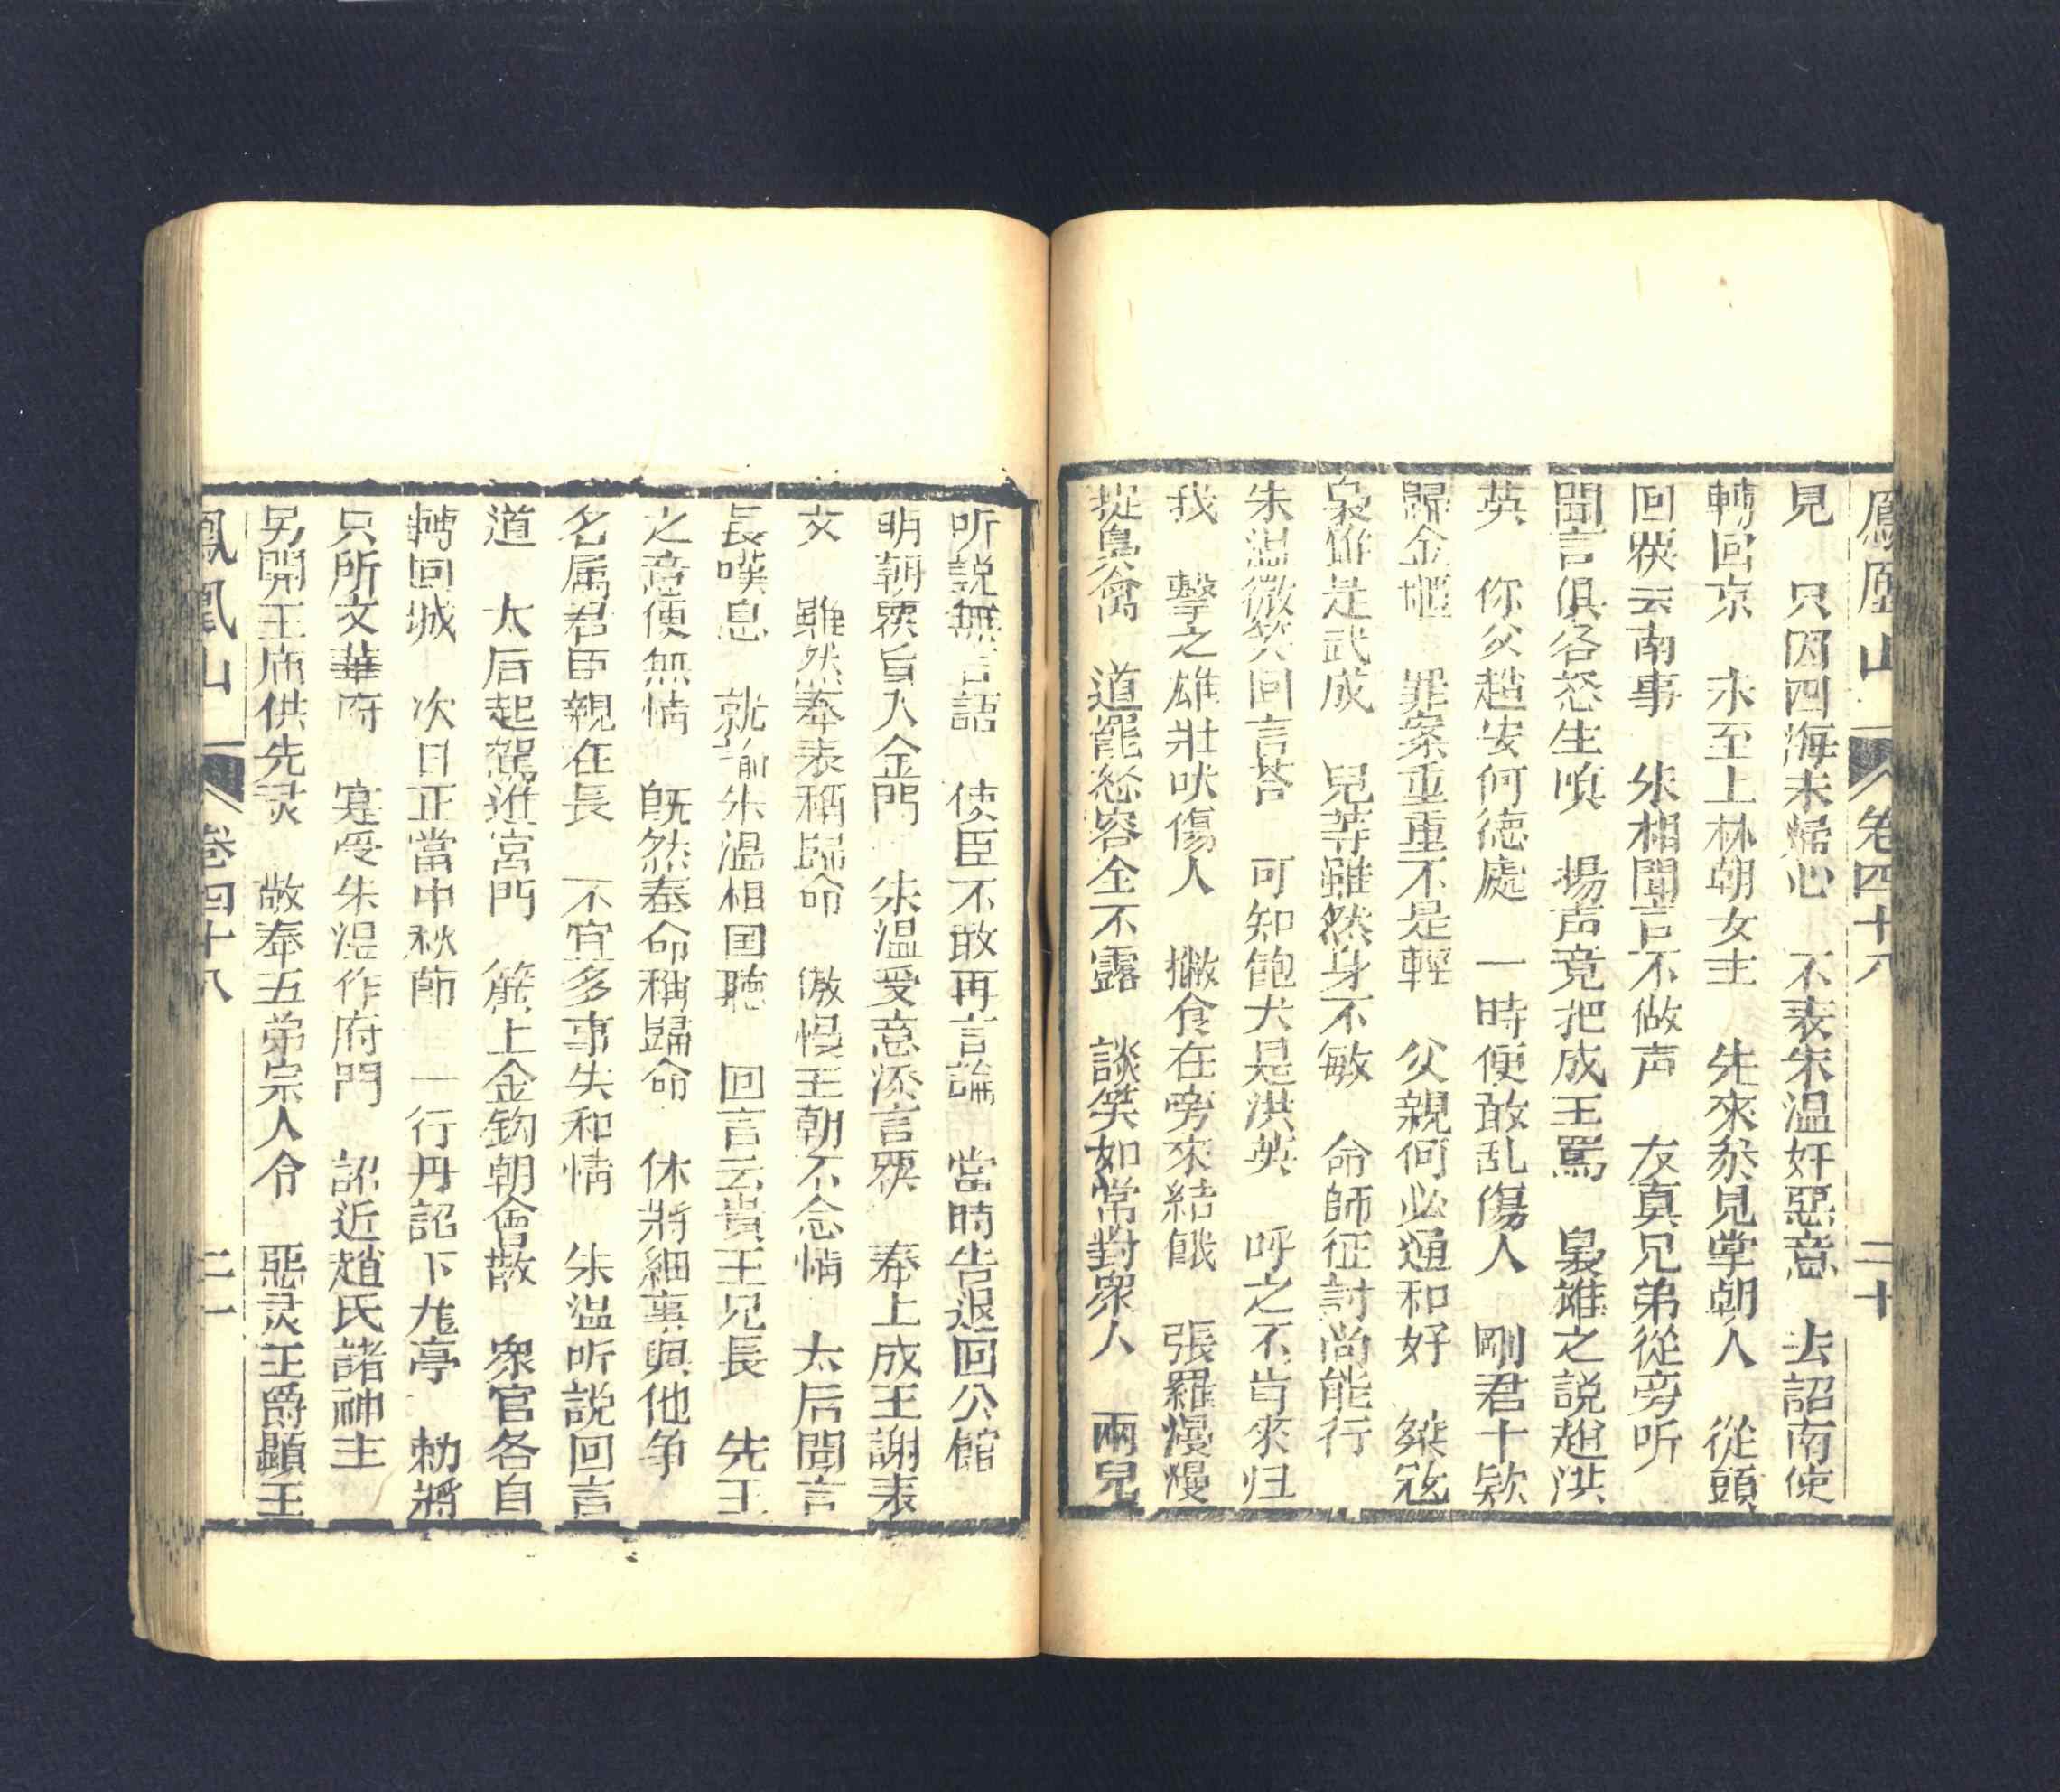 鳳凰山 卷四十八 二十
見 只因四海未歸心 不表朱温奸惡意 去詔南使
轉回京 未至上林朝女主 先來叅見掌朝人 從頭
回禀云南事 朱相聞言不做声 友真兄弟從旁听
聞言俱各怒生嗔 揚声竟把成王罵 梟雄之説趙洪
英 你父趙安何德處 一時便敢乱傷人 剛君十欵
歸金匭 罪案重重不是輕 父親何必通和好 桀冦
梟雄是武成 兒等雖然身不敏 命師征討尚能行
朱温微笑回言荅 可知飽犬是洪英 呼之不肯來归
我 擊之雄壯吠傷人 撇食在旁來結餓 張羅慢慢
捉梟禽 道罷愁容全不露 談笑如常對衆人 兩兒
听説無言語 使臣不敢再言論 當時告退回公館
明朝禀旨入金門 朱温受意添言禀 奉上成王謝表
文 雖然奉表稱歸命 傲慢王朝不念情 太后聞言
長嘆息 就諭朱温相国聽 回言云貴王兄長 先王
之意便無情 既然奉命稱歸命 休將細事與他争
名属君臣親在長 不宜多事失和情 朱温听説回言
道 太后起駕進宫門 簾上金鈎朝會散 衆官各自
轉回城 次日正當中秋節 一行丹詔下龙亭 勅將
只所文華府 寔受朱温作府門 詔近趙氏諸神主
另開王庙供先灵 敬奉五弟宗人令 惡灵王爵顯王
鳳凰山 卷四十八 二一